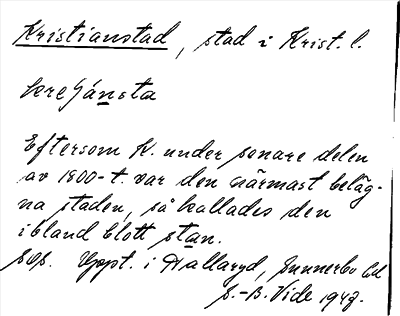 Kristianstad, stad i Krist. l.
Eftersom K. under senare delen
av 1800-t. var den närmast beläg-
na staden, så kallades den
ibland blott stan.
Uppt. i Hallaryd, Sunnerbo hd
S.-B. Vide 194